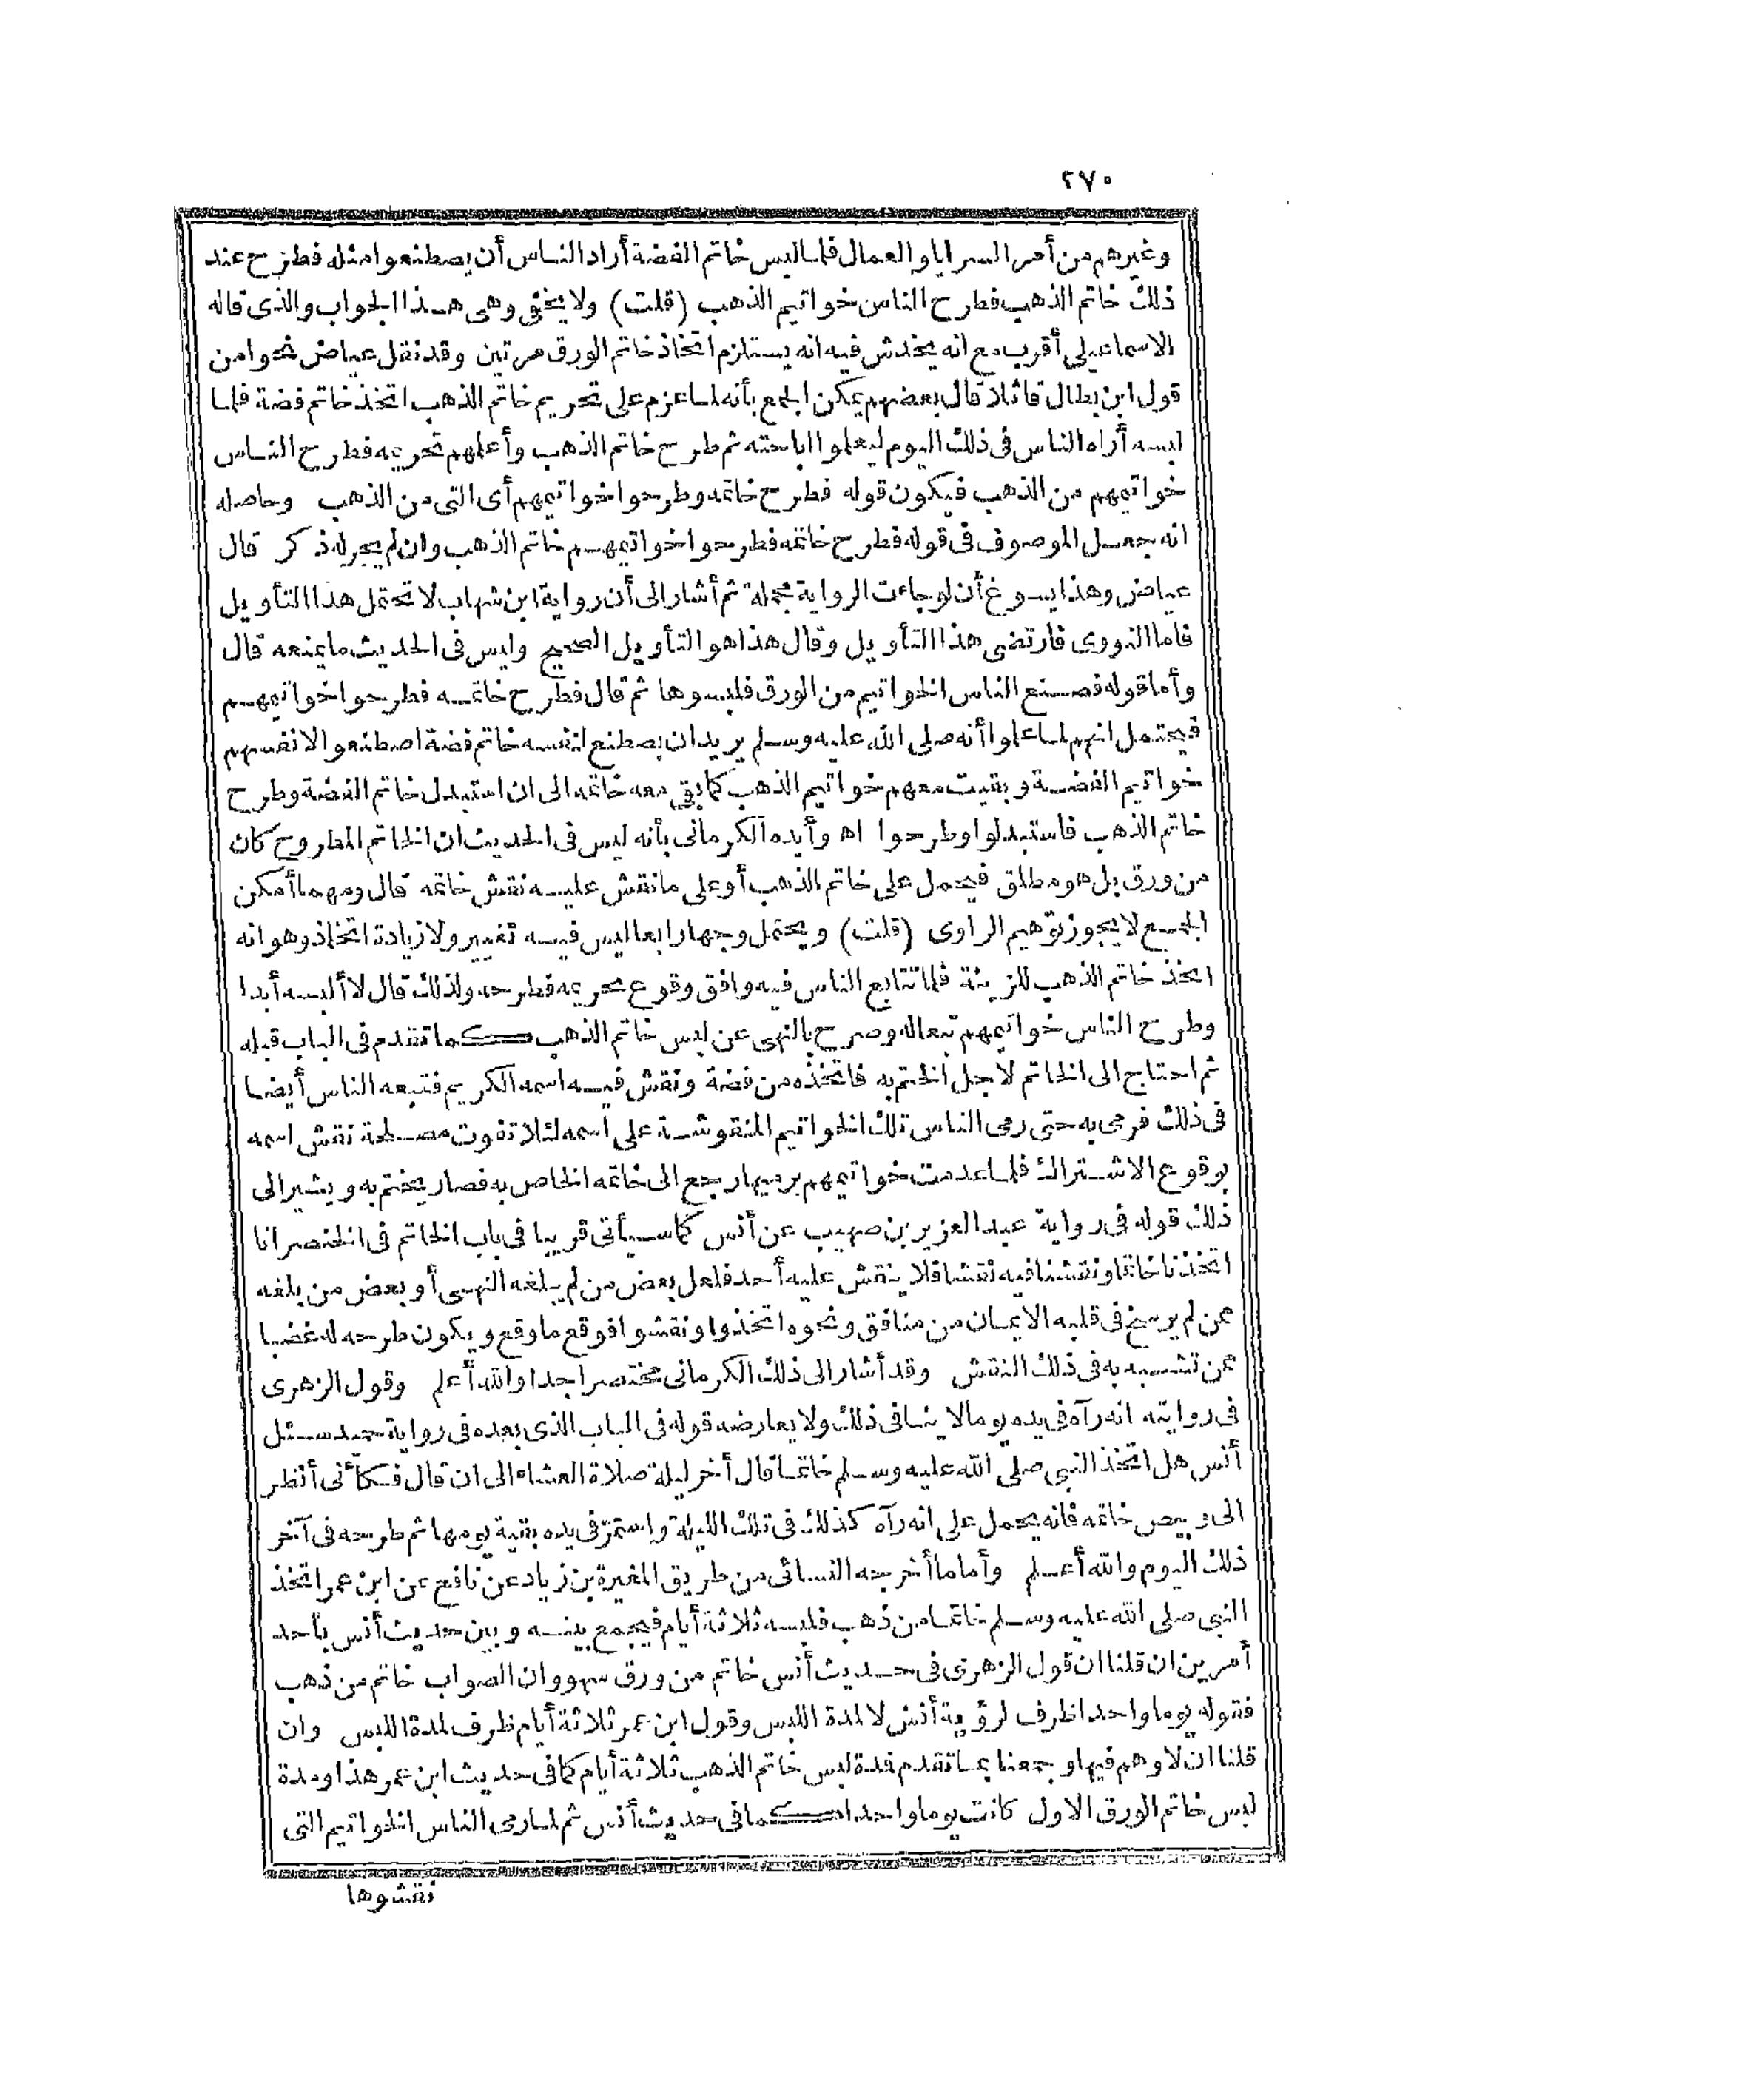 ٢٧٠
وغيرهم من أمر السرايا والعمال فلما لبس خاتم الفضة أراد الناس أن يصطنعوا مثله فطرح عند
ذلك خاتم الذهب فطرح الناس خواتيم الذهب (قلت) ولا يخفى وهى هذا الجواب والذى قاله
الاسماعيلى أقرب مع انه يخدش فيه انه يستلزم اتخاذ خاتم الورق مرتين وقد نقل عياض نحوا من
قول ابن بطال قائلا قال بعضهم يمكن الجمع بأنه لما عزم على تحريم خاتم الذهب اتخذ خاتم فضة فلما
لبسه أراه الناس فى ذلك اليوم ليعلموا اباحته ثم طرح خاتم الذهب وأعلمهم تحريمه فطرح الناس
خواتيمهم من الذهب فيكون قوله فطرح خاتمه وطرحوا خواتيمهم أى التى من الذهب وحاصله
انه جعل الموصوف فى قوله فطرح خاتمه فطرحوا خواتيمهم خاتم الذهب وان لم يجر له ذكر قال
عياض وهذا يسوغ أن لو جاءت الرواية مجملة ثم أشار الى أن رواية ابن شهاب لا تحتمل هذا التأويل
فاما النووى فارتضى هذا التأويل وقال هذا هو التأويل الصحيح وليس فى الحديث ما يمنعه قال
وأما قوله فصنع الناس الخواتيم من الورق فلبسوها ثم قال فطرح خاتمه فطرحوا خواتيمهم
فيحتمل انهم لما علموا أنه صلى الله عليه وسلم يريد ان يصطنع لنفسه خاتم فضة اصطنعوا لانفسهم
خواتيم الفضة وبقيت معهم خواتيم الذهب كما بقى معه خاتمه الى ان استبدل خاتم الفضة وطرح
خاتم الذهب فاستبدلوا وطرحوا اه وأيده الكرمانى بأنه ليس فى الحديث ان الخاتم المطروح كان
من ورق بل هو مطلق فيحمل على خاتم الذهب أو على ما نقش عليه نقش خاتمه قال ومهما أمكن
الجمع لا يجوز توهيم الراوى (قلت) ويحتمل وجها رابعا ليس فيه تغيير ولا زيادة اتخاذ وهو انه
اتخذ خاتم الذهب للزينة فلما تتابع الناس فيه وافق وقوع تحريمه فطرحه ولذلك قال لا ألبسه أبدا
وطرح الناس خواتيمهم تبعا له وصرح بالنهى عن لبس خاتم الذهب كما تقدم فى الباب قبله
ثم احتاج الى الخاتم لاجل الختم به فاتخذه من فضة ونقش فيه اسمه الكريم فتبعه الناس أيضا
فى ذلك فرمى به حتى رمى الناس تلك الخواتيم المنقوشة على اسمه لئلا تفوت مصلحة نقش اسمه
بوقوع الاشتراك فلما عدمت خواتيمهم برميها رجع الى خاتمه الخاص به فصار يختم به ويشير الى
ذلك قوله فى رواية عبد العزيز بن صهيب عن أنس كما سيأتى قريبا فى باب الخاتم فى الخنصر انا
اتخذنا خاتما ونقشنا فيه نقشا فلا ينقش عليه أحد فلعل بعض من لم يبلغه النهى أو بعض من بلغه
ممن لم يرسخ فى قلبه الايمان من منافق ونحوه اتخذوا ونقشوا فوقع ما وقع ويكون طرحه له غضبا
ممن تشبه به فى ذلك النقش وقد أشار الى ذلك الكرمانى مختصرا جدا والله أعلم وقول الزهرى
فى روايته انه رآه فى يده يوما لا ينافى ذلك ولا يعارضه قوله فى الباب الذى بعده فى رواية حميد سئل
أنس هل اتخذ النبى صلى الله عليه وسلم خاتما قال أخر ليلة صلاة العشاء الى ان قال فكأنى أنظر
الى وبيص خاتمه فانه يحمل على انه رآه كذلك فى تلك الليلة واستمر فى يده بقية يومها ثم طرحه فى آخر
ذلك اليوم والله أعلم وأما ما أخرجه النسائى من طريق المغيرة بن زياد عن نافع عن ابن عمر اتخذ
النبى صلى الله عليه وسلم خاتما من ذهب فلبسه ثلاثة أيام فيجمع بينه وبين حديث أنس بأحد
أمرين ان قلنا ان قول الزهرى فى حديث أنس خاتم من ورق سهو وان الصواب خاتم من ذهب
فقوله يوما واحدا ظرف لرؤية أنس لا لمدة اللبس وقول ابن عمر ثلاثة أيام ظرف لمدة اللبس وان
قلنا ان لا وهم فيها وجمعنا بما تقدم فمدة لبس خاتم الذهب ثلاثة أيام كما فى حديث ابن عمر هذا ومدة
لبس خاتم الورق الاول كانت يوما واحدا كما فى حديث أنس ثم لما رمى الناس الخواتيم التى
نقشوها